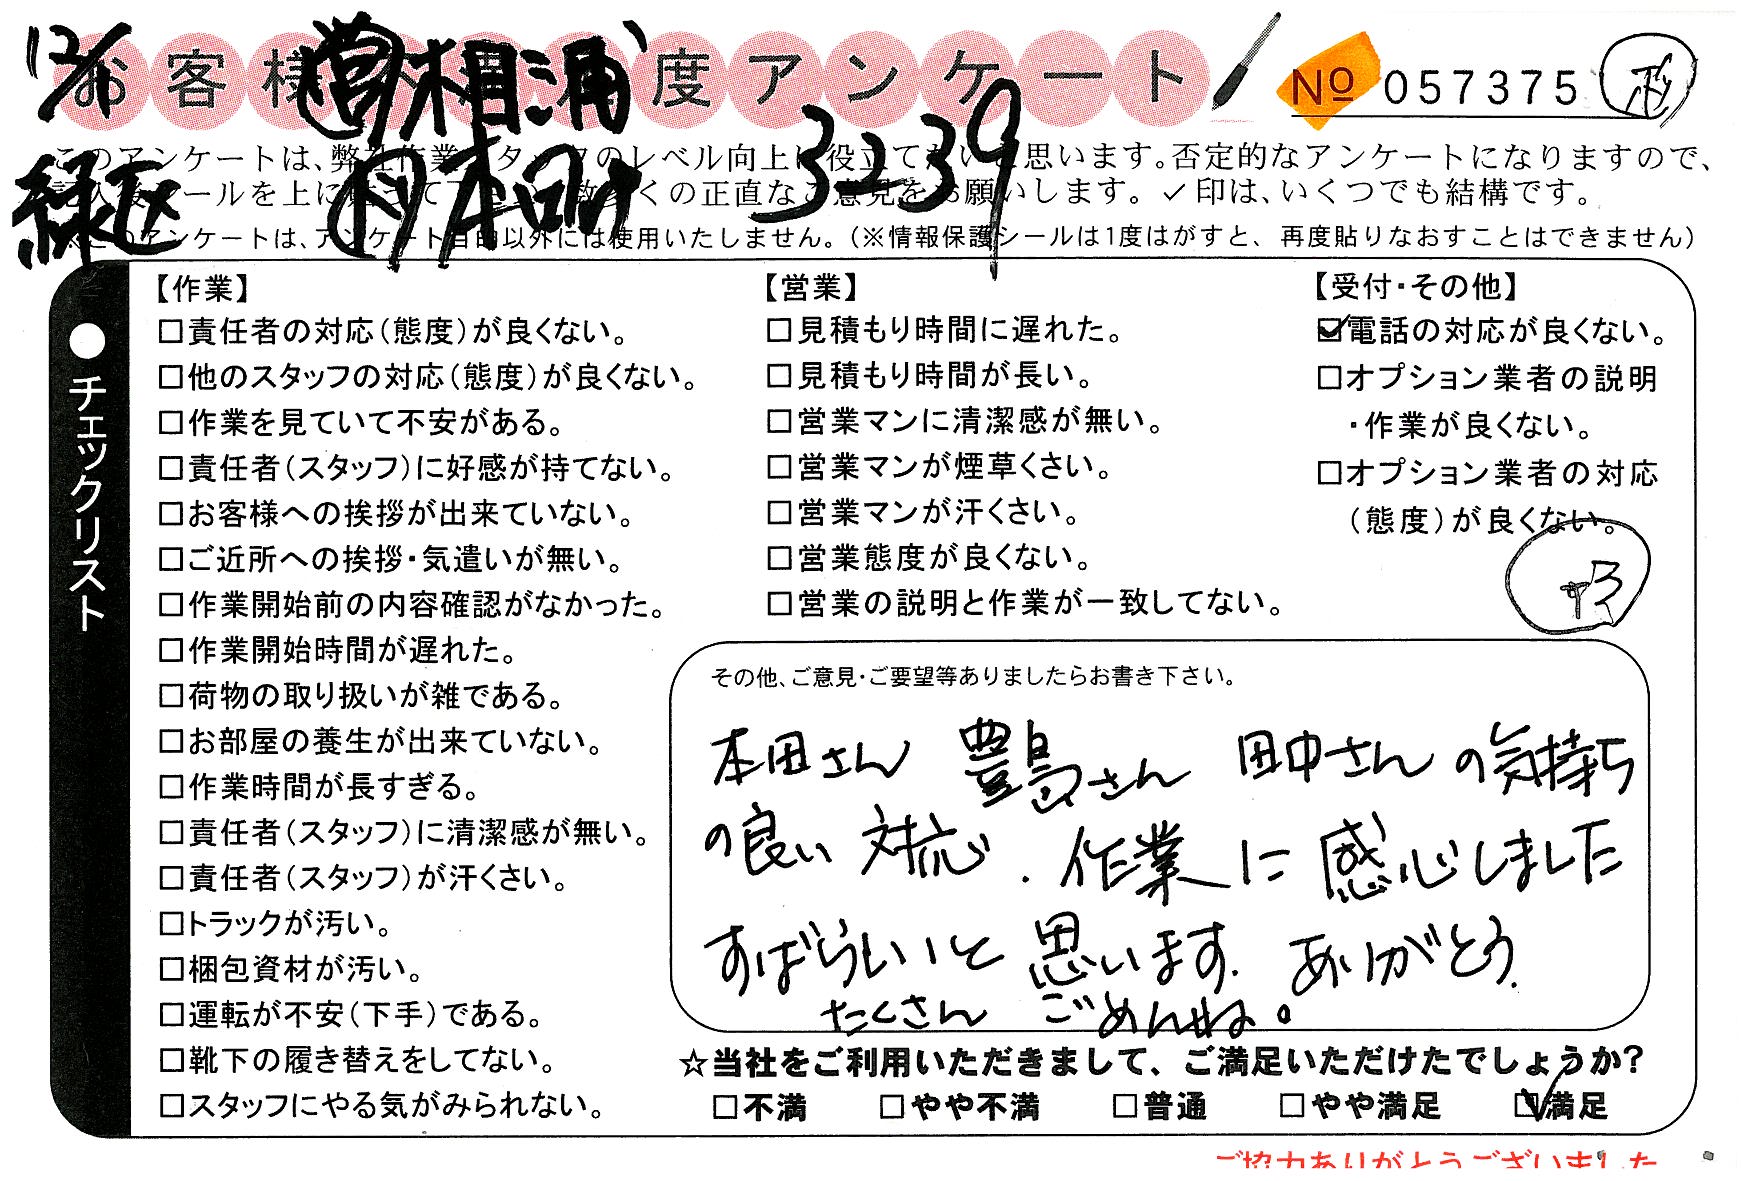 12/1
お客様 度アンケート
営 相浦
No 057375
緑区
作 本田 3239
このアンケートは、弊社作業スタッフのレベル向上に役立てたいと思います。否定的なアンケートになりますので、
記入後シールを上に貼って下さい。数多くの正直なご意見をお願いします。✓印は、いくつでも結構です。
※このアンケートは、アンケート目的以外には使用いたしません。(※情報保護シールは1度はがすと、再度貼りなおすことはできません)
●チェックリスト
【作業】
□責任者の対応(態度)が良くない。
□他のスタッフの対応(態度)が良くない。
□作業を見ていて不安がある。
□責任者(スタッフ)に好感が持てない。
□お客様への挨拶が出来ていない。
□ご近所への挨拶・気遣いが無い。
□作業開始前の内容確認がなかった。
□作業開始時間が遅れた。
□荷物の取り扱いが雑である。
□お部屋の養生が出来ていない。
□作業時間が長すぎる。
□責任者(スタッフ)に清潔感が無い。
□責任者(スタッフ)が汗くさい。
□トラックが汚い。
□梱包資材が汚い。
□運転が不安(下手)である。
□靴下の履き替えをしてない。
□スタッフにやる気がみられない。
【営業】
□見積もり時間に遅れた。
□見積もり時間が長い。
□営業マンに清潔感が無い。
□営業マンが煙草くさい。
□営業マンが汗くさい。
□営業態度が良くない。
□営業の説明と作業が一致してない。
【受付・その他】
☑電話の対応が良くない。
□オプション業者の説明
・作業が良くない。
□オプション業者の対応
(態度)が良くない。
+3
その他、ご意見・ご要望等ありましたらお書き下さい。
本田さん 豊島さん 田中さん の気持ち
の良い 対応．作業に 感心しました
すばらしいと 思います．ありがとう．
たくさん ごめんね。
☆当社をご利用いただきまして、ご満足いただけたでしょうか?
□不満 □やや不満 □普通 □やや満足 ☑満足
ご協力ありがとうございました